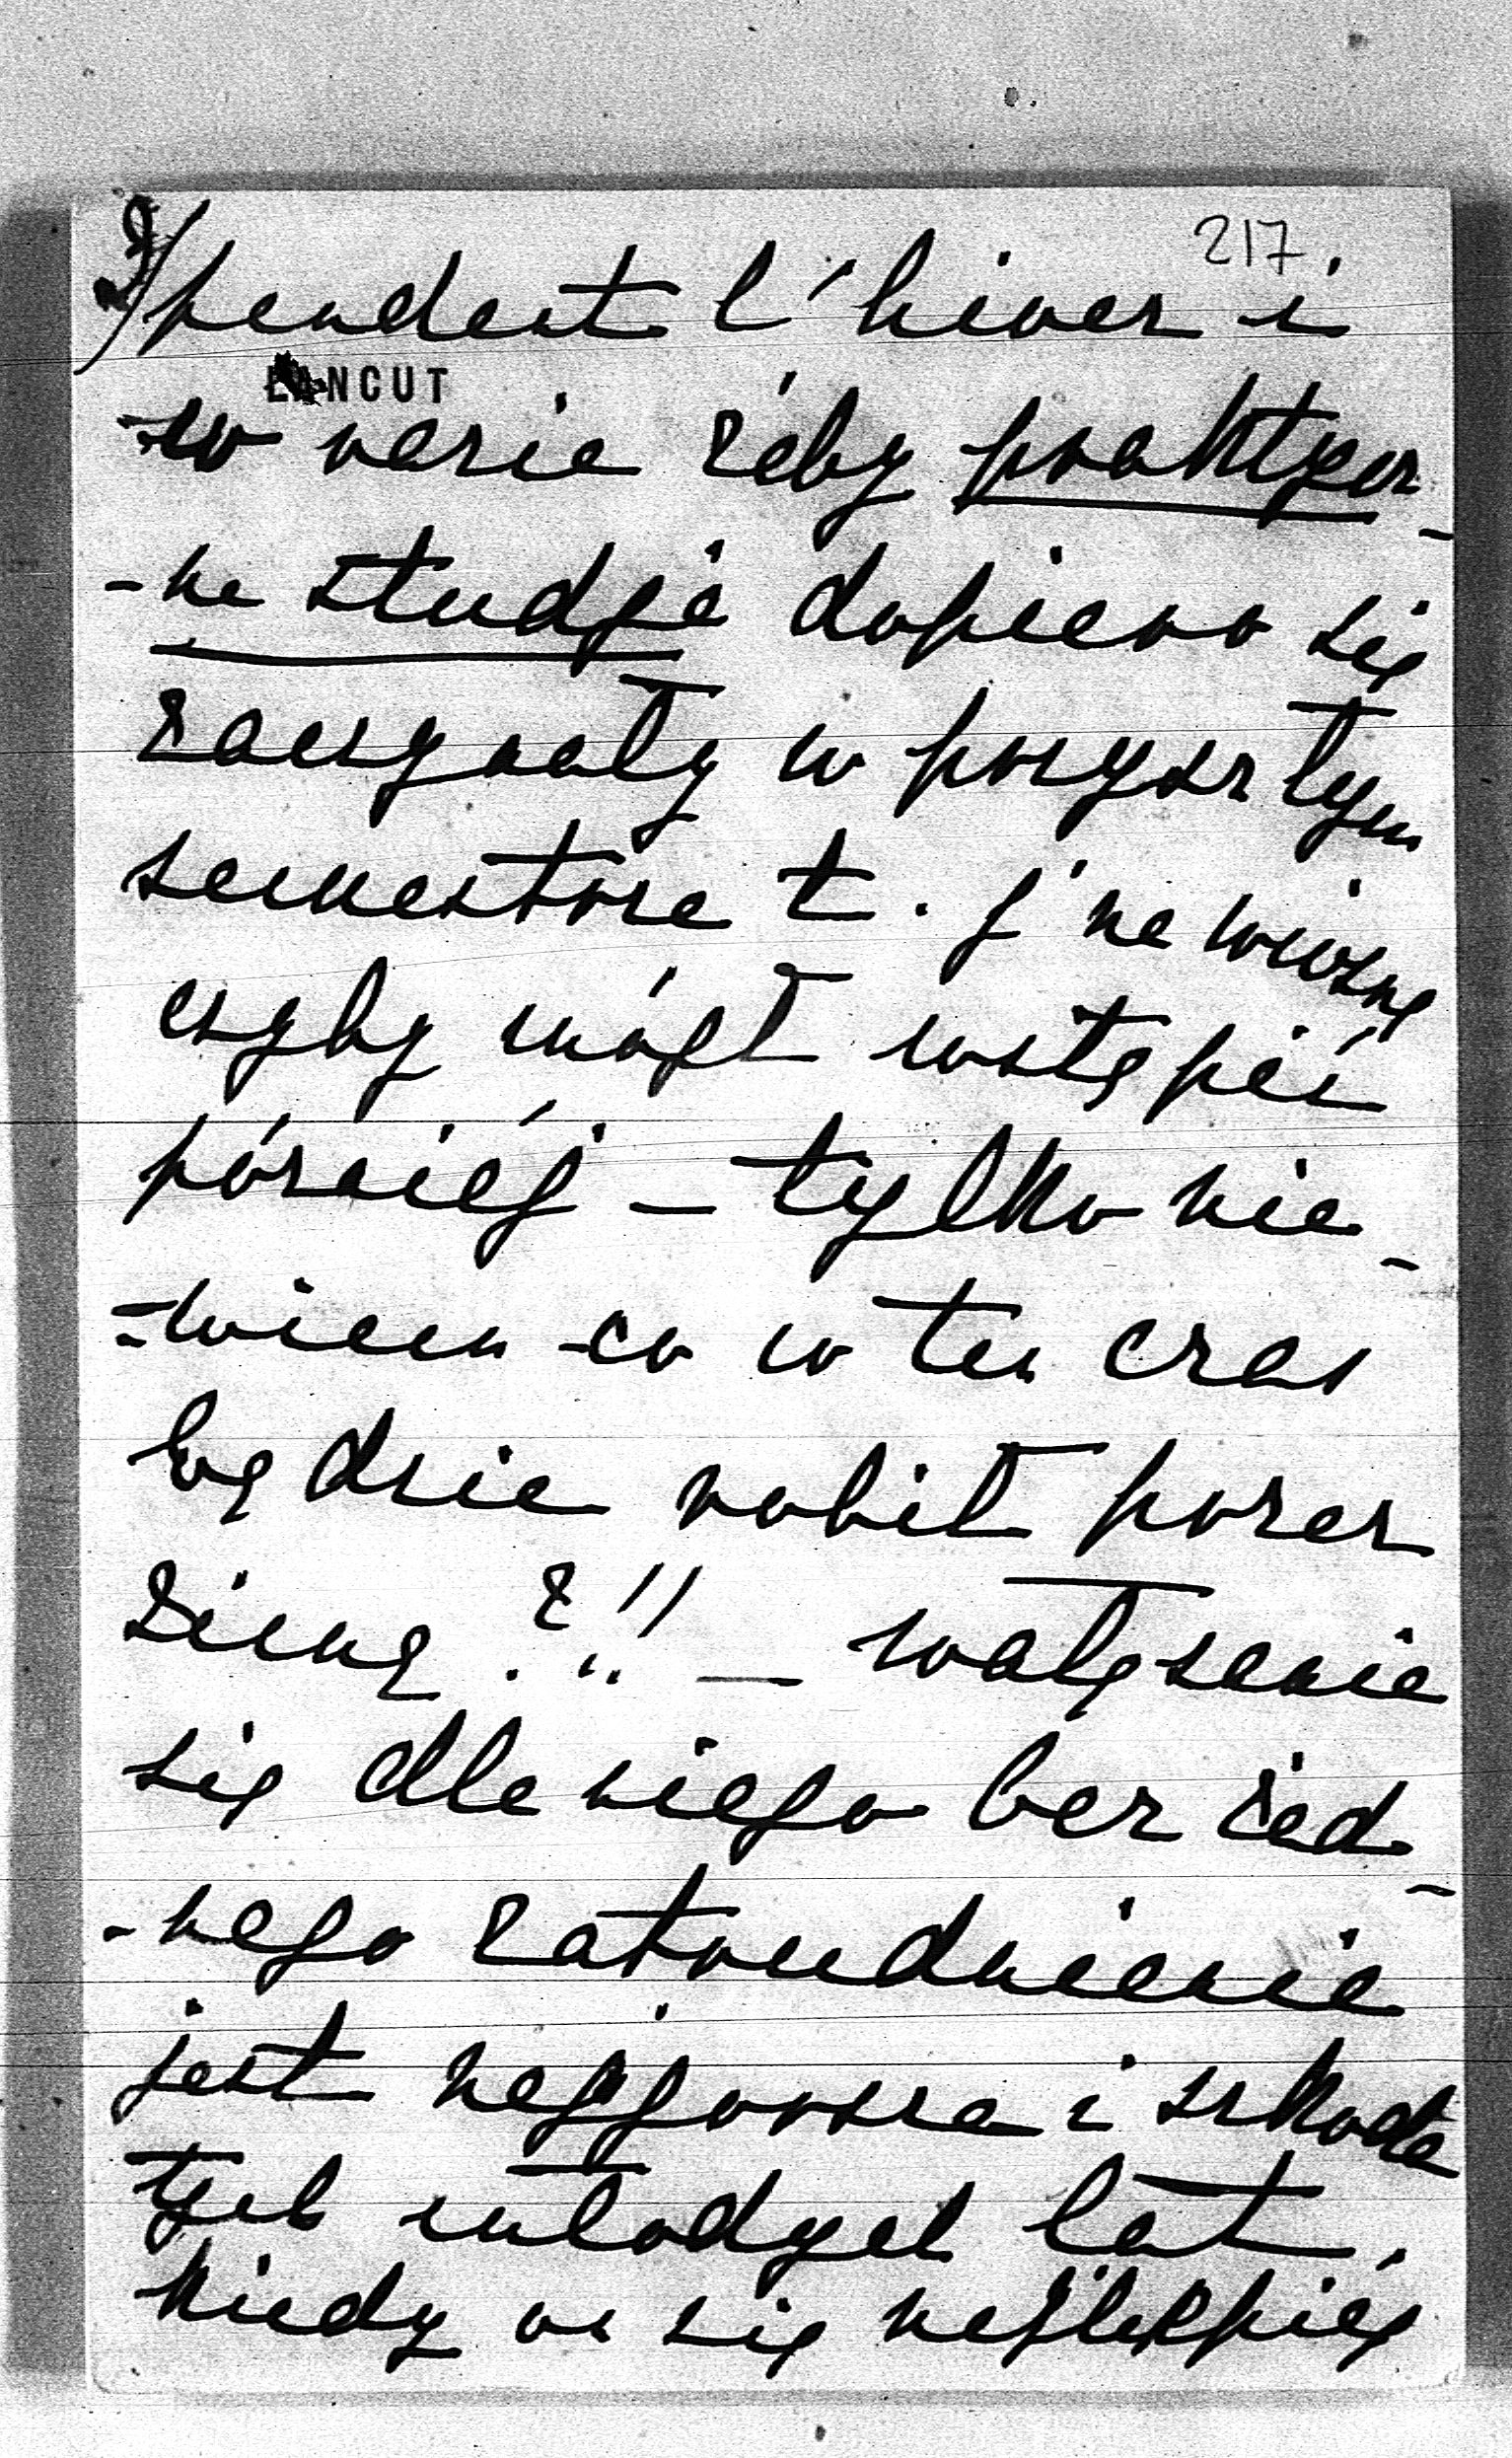 217.
2/ pendant l'hiver i
ŁANCUT
w razie żeby praktycz-
-ne studja dopiero się
zaczynały w przyszłym
semestrze t. j. na wiosnę
czyby mógł wstąpić
później – tylko nie-
=wiem co w ten czas
będzie robił przez
zimę?!! – wałęsanie
się dla niego bez żad-
-nego zatrudnienia
jest najgorsze i szkoda
tych młodych lat,
kiedy on się najlepiej